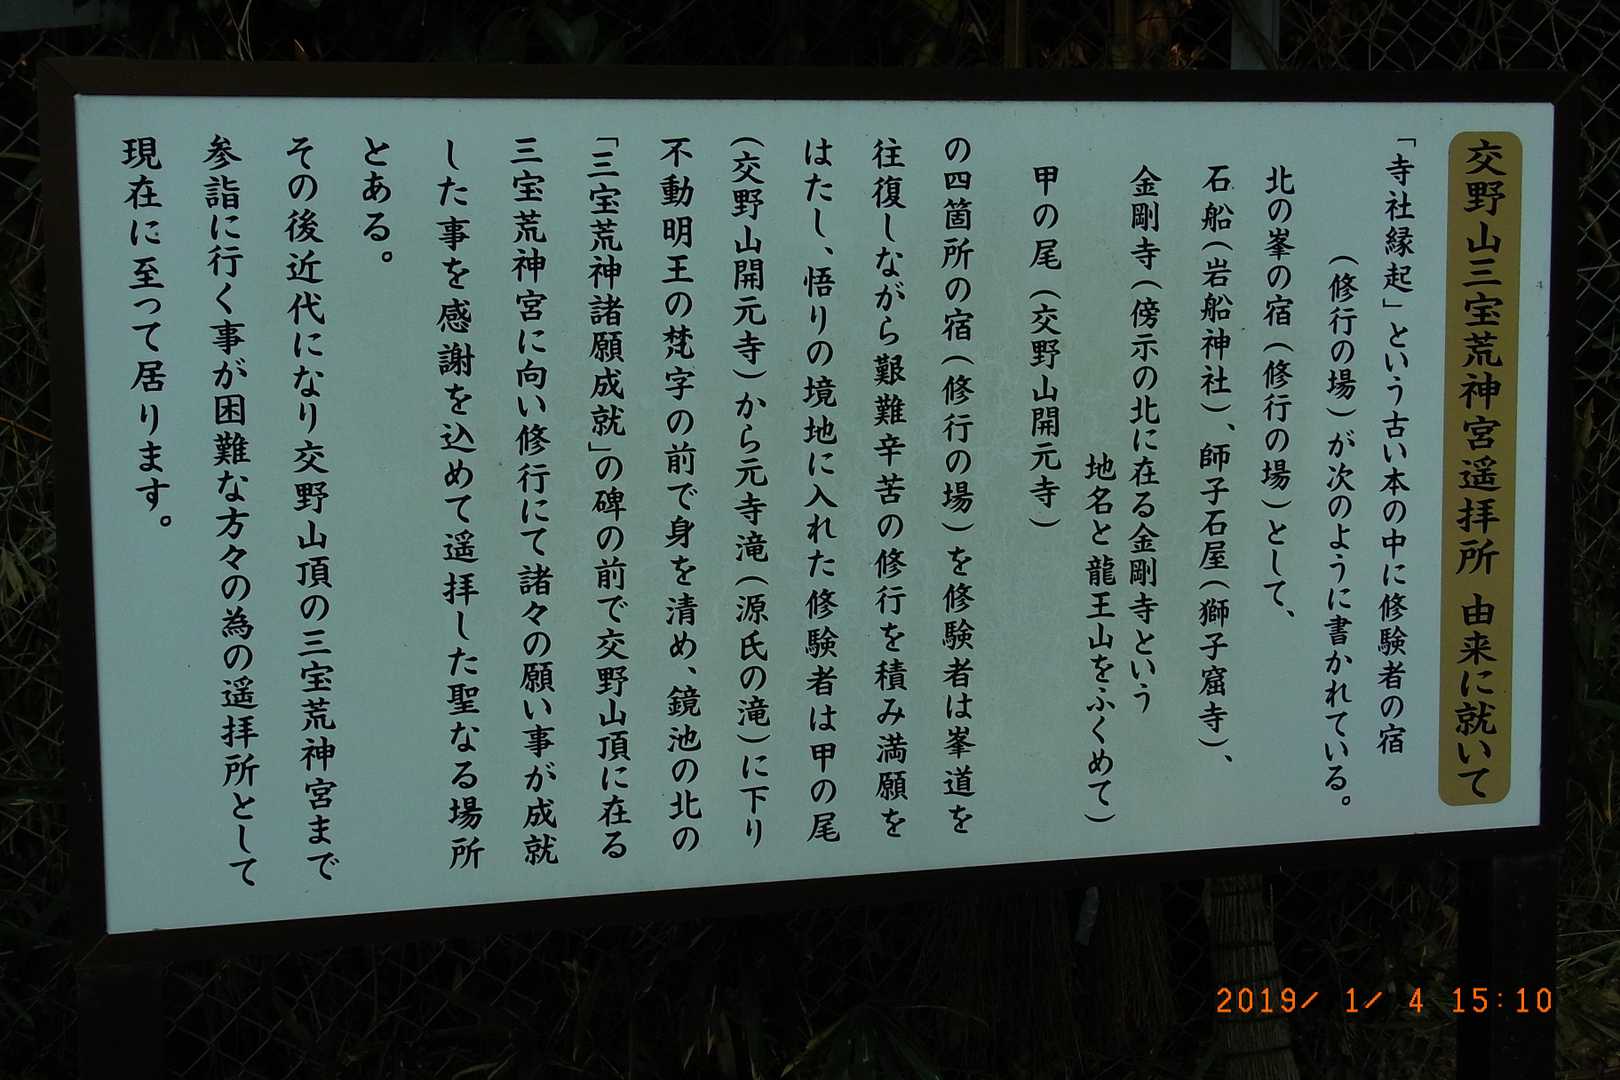 交野山三宝荒神宮遥拝所 由来に就いて
「寺社縁起」という古い本の中に修験者の宿
(修行の場)が次のように書かれている。
北の峯の宿(修行の場)として、
石船(岩船神社)、師子石屋(獅子窟寺)、
金剛寺(傍示の北に在る金剛寺という
地名と龍王山をふくめて)
甲の尾(交野山開元寺)
の四箇所の宿(修行の場)を修験者は峯道を
往復しながら艱難辛苦の修行を積み満願を
はたし、悟りの境地に入れた修験者は甲の尾
(交野山開元寺)から元寺滝(源氏の滝)に下り
不動明王の梵字の前で身を清め、鏡池の北の
「三宝荒神諸願成就」の碑の前で交野山頂に在る
三宝荒神宮に向い修行にて諸々の願い事が成就
した事を感謝を込めて遥拝した聖なる場所
とある。
その後近代になり交野山頂の三宝荒神宮まで
参詣に行く事が困難な方々の為の遥拝所として
現在に至って居ります。
2019/ 1/ 4 15:10